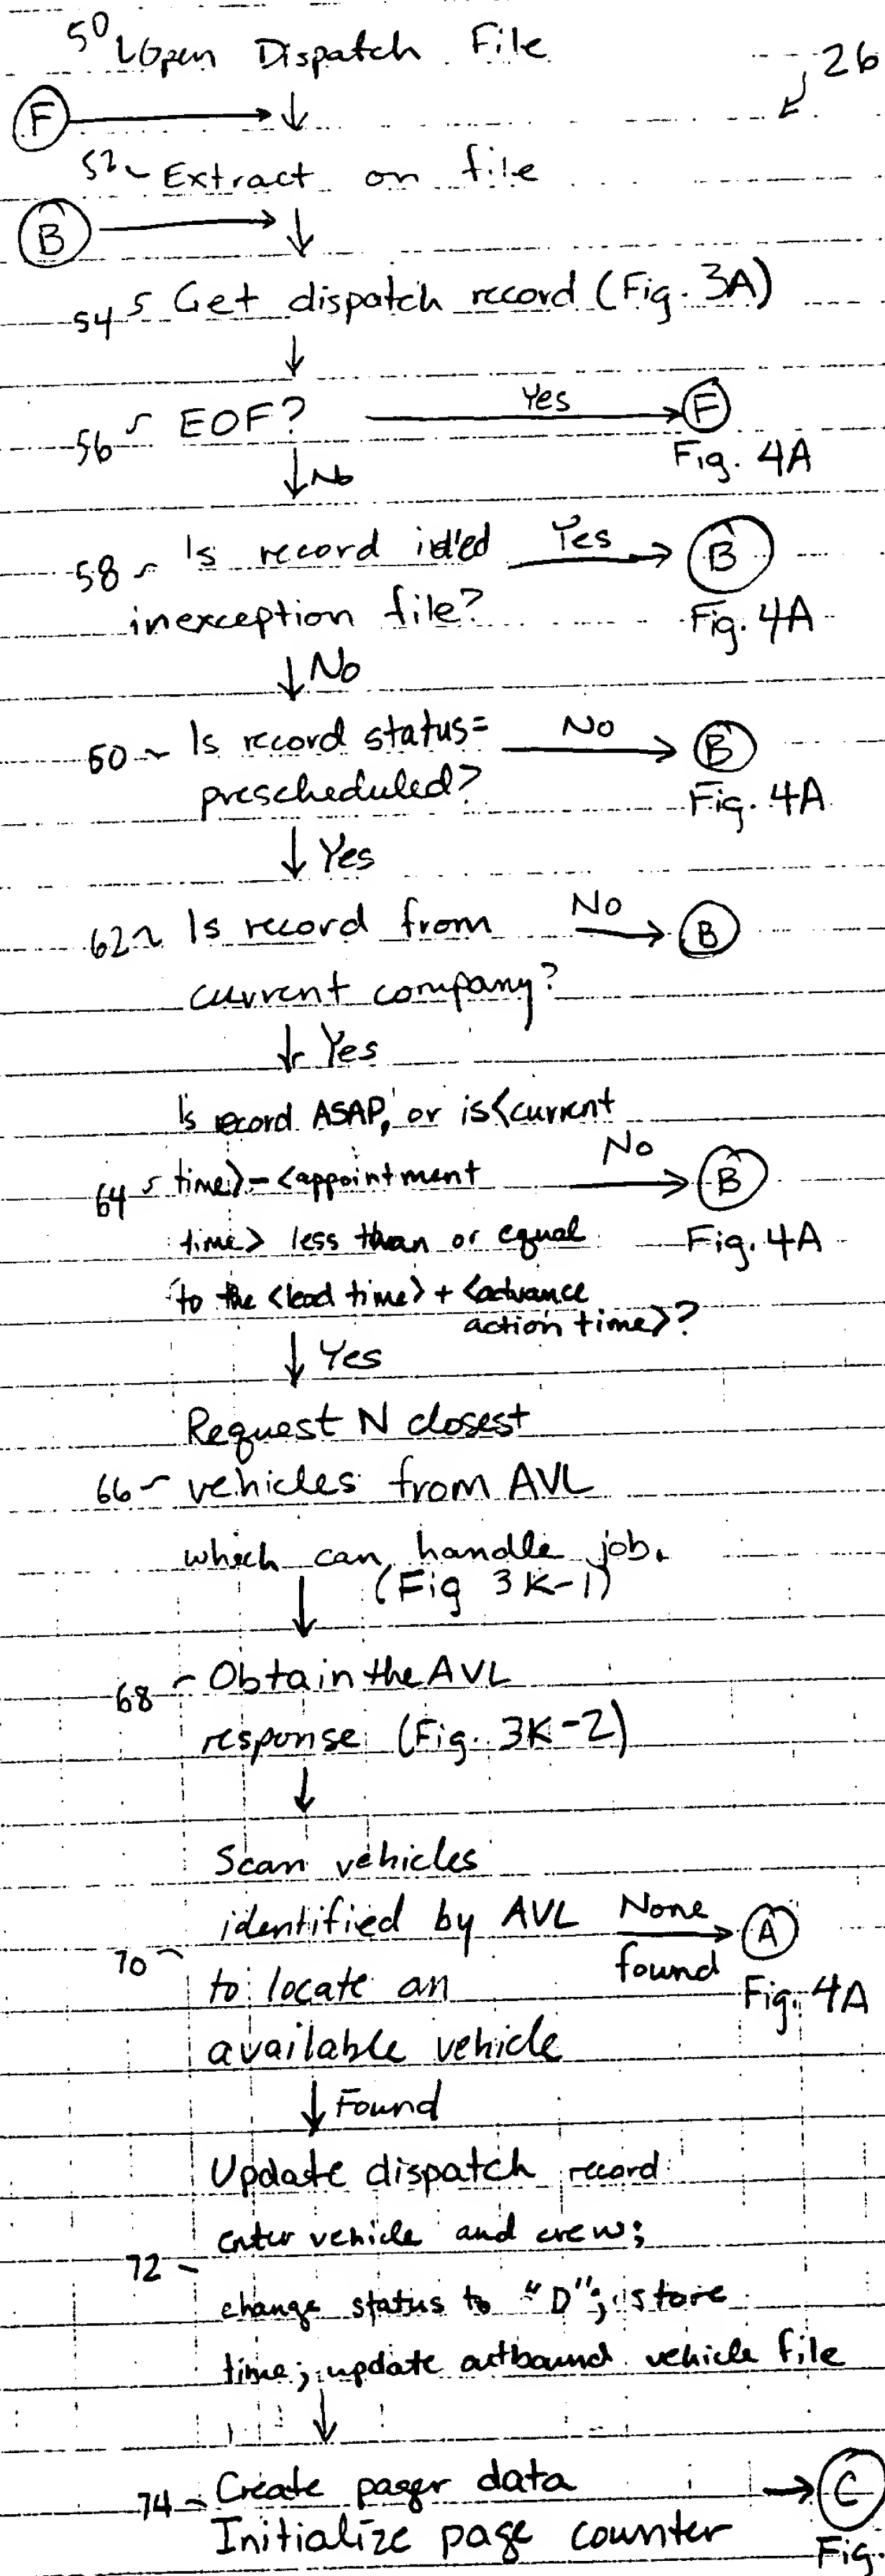 50 Open Dispatch File
26
F
52 Extract on file
B
54 Get dispatch record (Fig. 3A)
56 EOF? Yes F
Fig. 4A
No
58 Is record id'ed Yes B
inexception file? Fig. 4A
No
60 Is record status= No B
prescheduled? Fig. 4A
Yes
62 Is record from No B
current company?
Yes
Is record ASAP, or is <current
64 time> - <appointment No B
time> less than or equal Fig. 4A
to the <lead time> + <advance
action time>?
Yes
Request N closest
66 vehicles from AVL
which can handle job.
(Fig 3K-1)
68 Obtain the AVL
response (Fig. 3K-2)
Scan vehicles
identified by AVL None A
70 to locate an found Fig. 4A
available vehicle
Found
Update dispatch record
enter vehicle and crew;
72 change status to "D"; store
time; update outbound vehicle file
74 Create pager data C
Initialize page counter Fig.